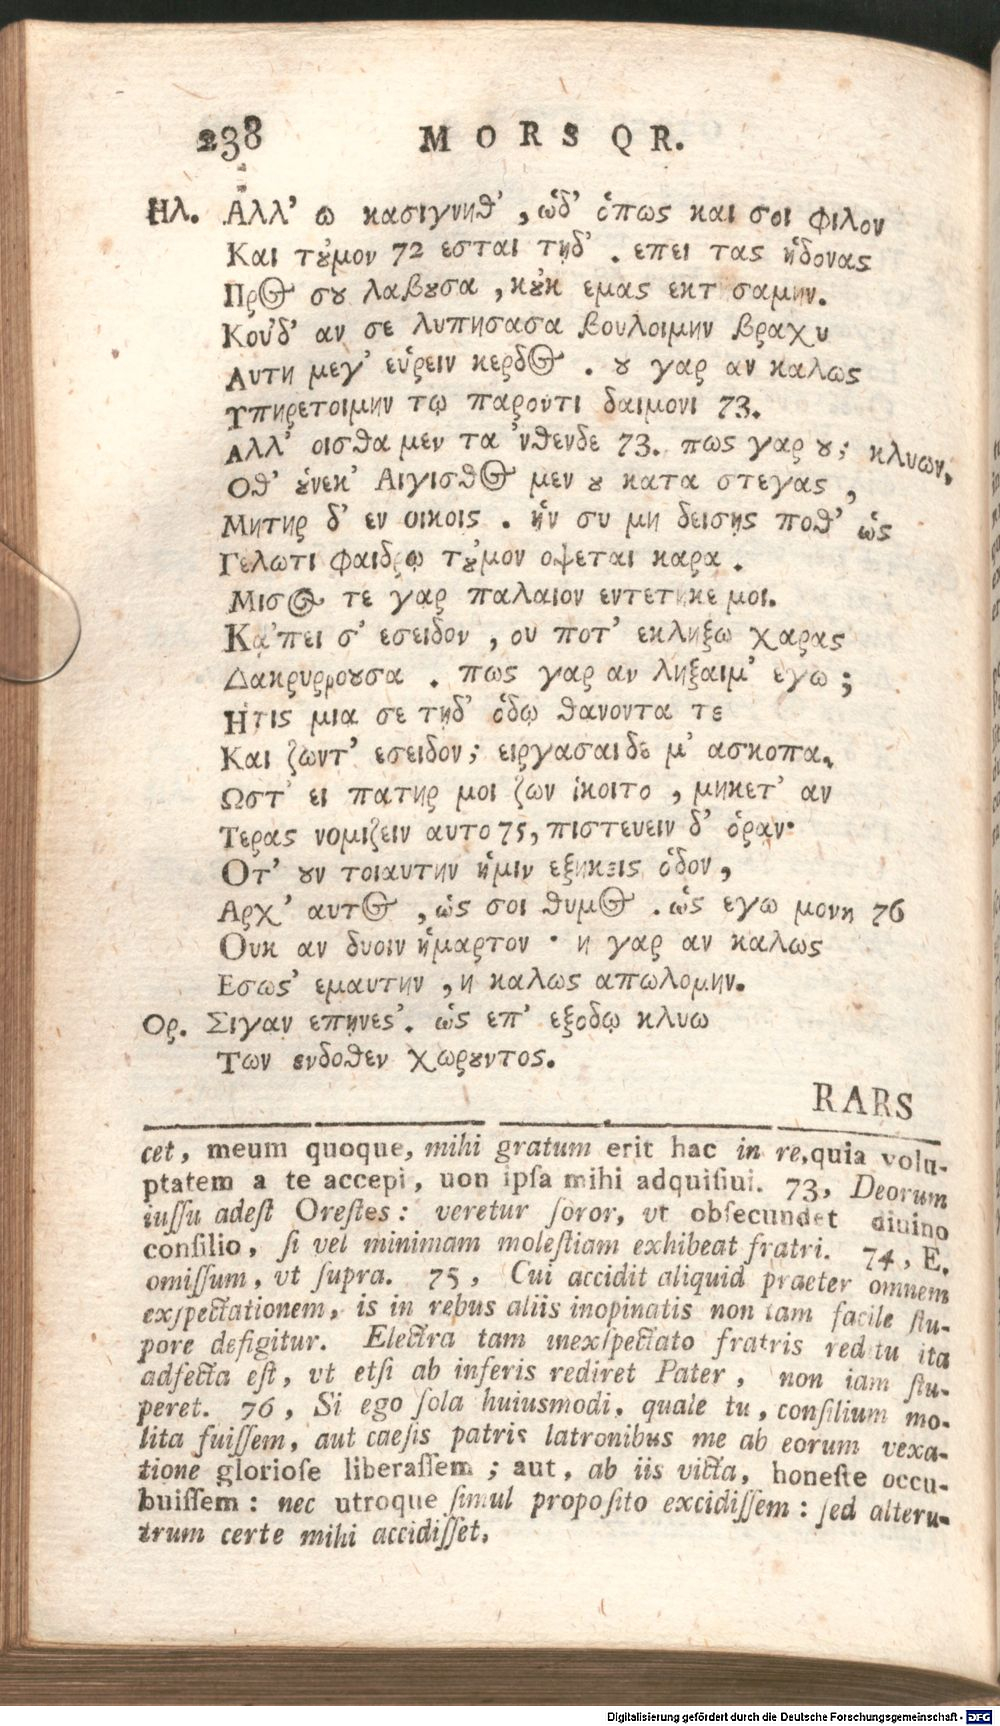 238 MORS QR.
Ηλ. Αλλ’ ω κασιγνηθ’, ὡδ’ ὁπως και σοι φιλον
Και τȣ̓μον 72 εσται τηδ’. επει τας ἡδονας
Προς σου λαβȣσα, κȣ̓κ εμας εκτ σαμην.
Κοὐδ’ αν σε λυπησασα βουλοιμην βραχυ
Αυτη μεγ’ εὑρειν κερδος. ȣ γαρ αν καλως
Υπηρετοιμην τῳ παροντι δαιμονι 73.
Αλλ’ οισθα μεν τα ’νθενδε 73. πως γαρ ȣ; κλυων,
Οθ’ ȣ̔νεκ’ Αιγισθος μεν ȣ κατα στεγας,
Μητηρ δ’ εν οικοις. ἡν συ μη δεισῃς ποθ’ ὡς
Γελωτι φαιδρῳ τȣ̓μον οψεται καρα.
Μισος τε γαρ παλαιον εντετηκε μοι.
Κα’πει σ’ εσειδον, ου ποτ’ εκληξω χαρας
Δακρυρροȣσα. πως γαρ αν ληξαιμ’ εγω;
Ητις μια σε τῃδ’ ὁδῳ θανοντα τε
Και ζωντ’ εσειδον; ειργασαι δε μ’ ασκοπα.
Ωστ’ ει πατηρ μοι ζων ἱκοιτο, μηκετ’ αν
Τερας νομιζειν αυτο 75, πιστευειν δ’ ὁραν·
Οτ’ ȣν τοιαυτην ἡμιν εξηκεις ὁδον,
Αρχ’ αυτος, ὡς σοι θυμος. ὡς εγω μονη 76
Ουκ αν δυοιν ἡμαρτον· η γαρ αν καλως
Εσωσ’ εμαυτην, η καλως απωλομην.
Ορ. Σιγαν επῃνεσ’. ὡς επ’ εξοδῳ κλυω
Των ενδοθεν χωρȣντος.
RARS
cet, meum quoque, mihi gratum erit hac in re, quia volu-
ptatem a te accepi, uon ipſa mihi adquiſiui. 73, Deorum
iuſſu adeſt Oreſtes: veretur ſoror, vt obſecundet diuino
conſilio, ſi vel minimam moleſtiam exhibeat fratri. 74, E.
omiſſum, vt ſupra. 75, Cui accidit aliquid praeter omnem
exſpectationem, is in rebus aliis inopinatis non tam facile ſtu-
pore defigitur. Electra tam inexſpectato fratris reditu ita
adfecta eſt, vt etſi ab inferis rediret Pater, non iam ſtu-
peret. 76, Si ego ſola huiusmodi, quale tu, conſilium mo-
lita fuiſſem, aut caeſis patris latronibus me ab eorum vexa-
tione glorioſe liberaſſem; aut, ab iis victa, honeſte occu-
buiſſem: nec utroque ſimul propoſito excidiſſem: ſed alteru-
trum certe mihi accidiſſet.
Digitalisierung gefördert durch die Deutsche Forschungsgemeinschaft - DFG